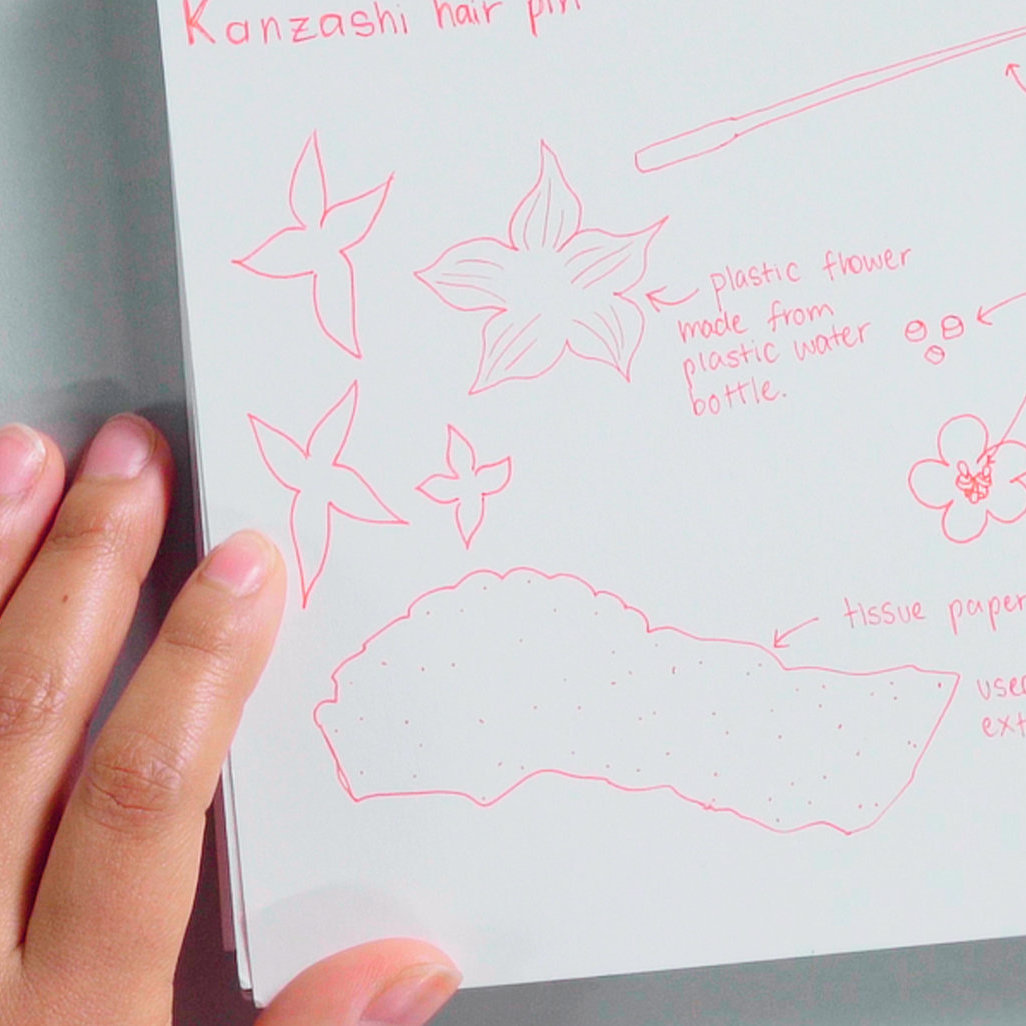 Kanzashi hair pin
plastic flower
made from
plastic water
bottle.
tissue paper